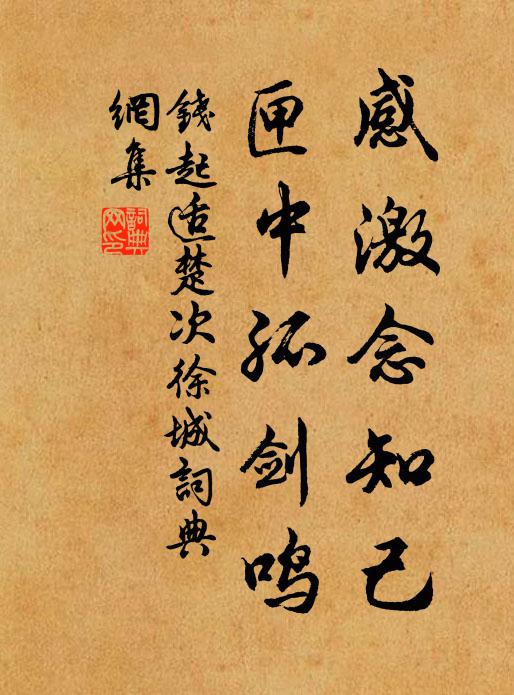 感激念知己
匣中孤剑鸣
錢起适楚次徐城詞典
網集
詞典
网印